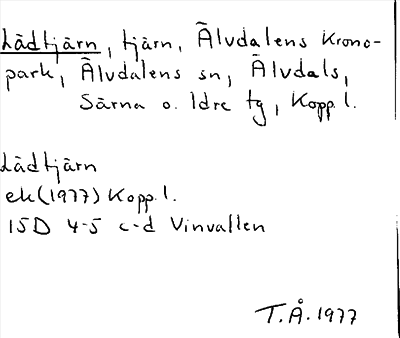 Lädtjärn, tjärn, Älvdalens Krono-
park, Älvdalens sn, Älvdals,
Särna o. Idre tg, Kopp. l.
Lädtjärn
ek (1977) Kopp. l.
15D 4-5 c-d Vinvallen
T.Å. 1977